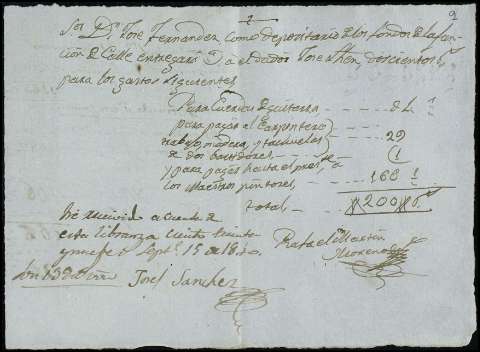 2
Sor Dn. José Fernandez como depositario de los fondos de la fun
ción de Calle entregará a el dador José doscientos
para los gastos siguientes
Para Cuerdas de guitarra
para pagar al Carpintero
trabajo, madera, y tachuelas 29
de dos bastidores
y para pagar hasta el preste. a
los Maestros pintores 163
total 200
he recivido a cuenta de
esta libranza ciento treinta
y nuebe Septe. 15 de
Rafael Martin
Moreno
Josef Sanchez